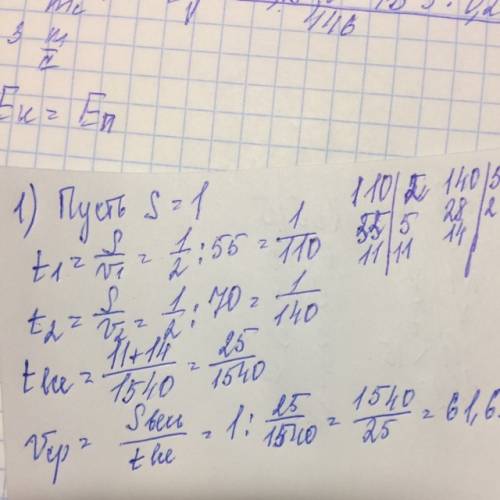 446
Eк = Eп
1) Пусть S = 1
t₁ = S/v₁ = 1/2 : 55 = 1/110
t₂ = S/v₂ = 1/2 : 70 = 1/140
tвс = 11+14/1540 = 25/1540
vср = Sвс/tвс = 1 : 25/1540 = 1540/25 = 61,6
110 | 2
55 | 5
11 | 11
140 | 5
28 | 2
14